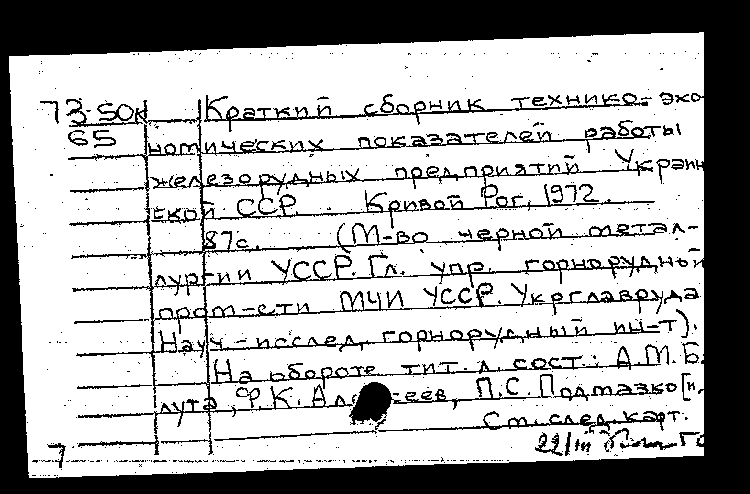 73-50к Краткий сборник технико-эко-
65 номических показателей работы
железорудных предприятий Украин
ской ССР. Кривой Рог, 1972.
87с. (М-во черной метал-
лургии УССР. Гл. упр. горнорудный
пром-сти МЧМ УССР. Укрглавруда
Науч-исслед. горнорудный ин-т).
На обороте тит. л. сост.: А.М.Б.
лута, Ф.К. Ал сеев, П.С. Подмазко [и.
См. след. карт.
7 22/III